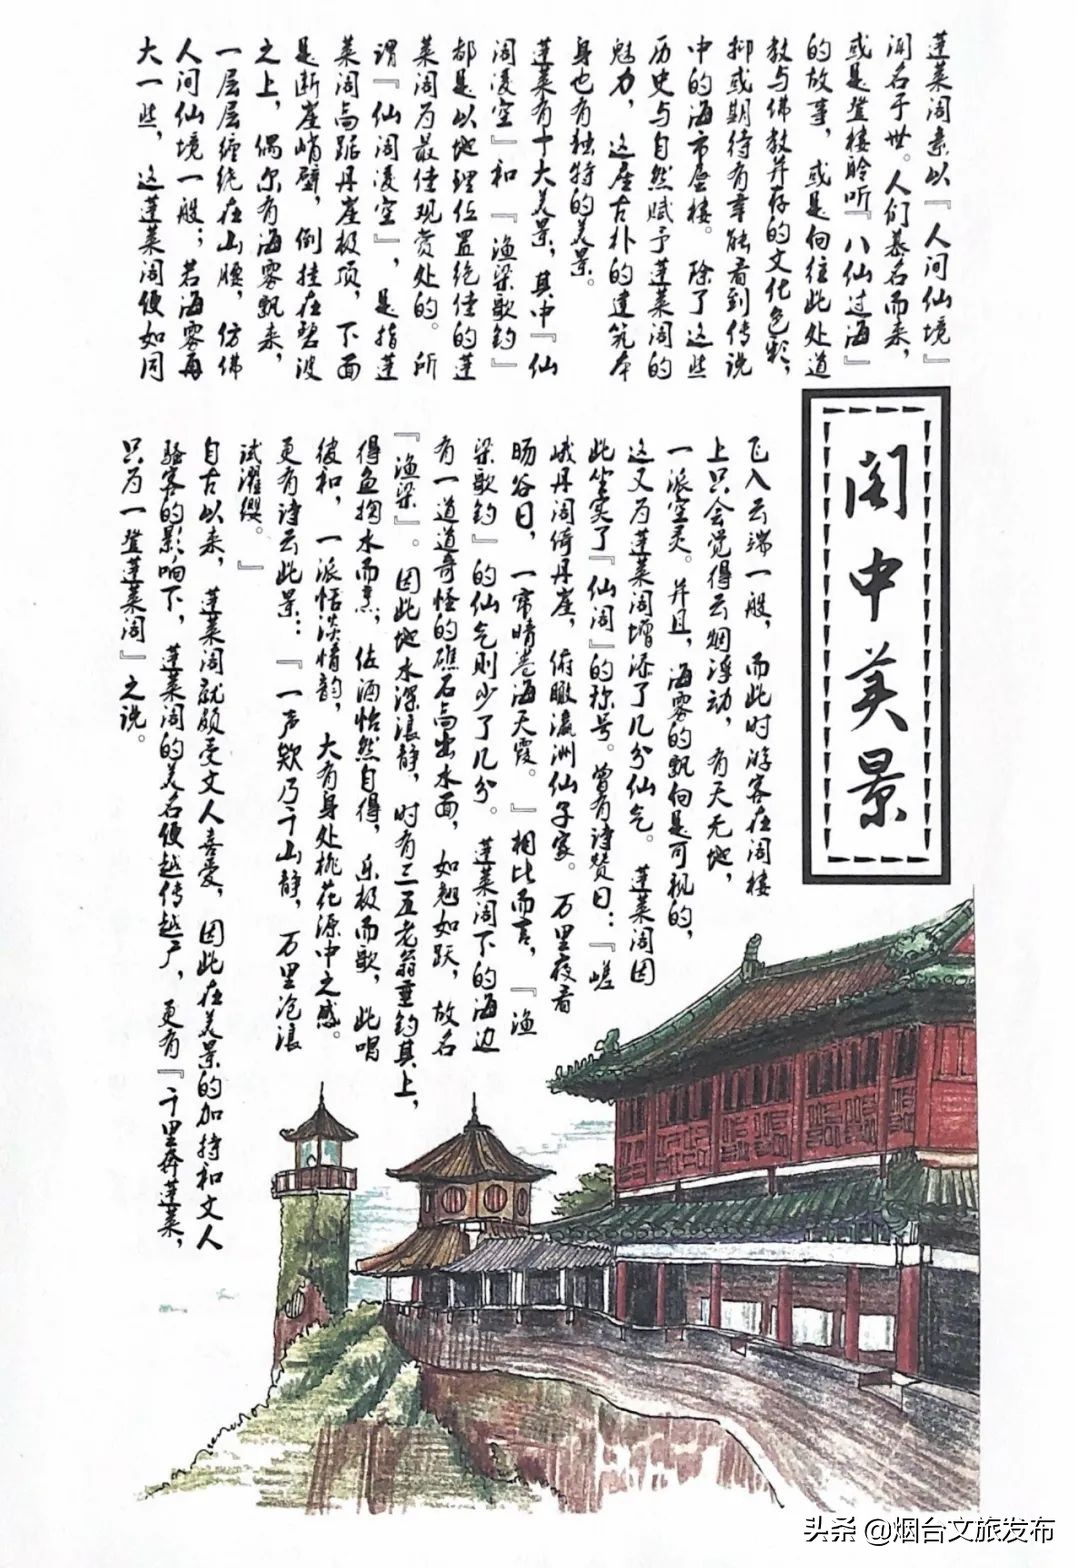 蓬莱阁素以『人间仙境』
闻名于世。人们慕名而来，
或是登楼聆听『八仙过海』
的故事，或是向往此处道
教与佛教并存的文化色彩，
抑或期待有幸能看到传说
中的海市蜃楼。除了这些
历史与自然赋予蓬莱阁的
魅力，这座古朴的建筑本
身也有独特的美景。
蓬莱有十大美景，其中『仙
阁凌空』和『渔梁歌钓』
都是以地理位置绝佳的蓬
莱阁为最佳观赏处的。所
谓『仙阁凌空』，是指蓬
莱阁高踞丹崖极顶，下面
是断崖峭壁，倒挂在碧波
之上，偶尔有海雾飘来，
一层层缠绕在山腰，仿佛
人间仙境一般；若海雾再
大一些，这蓬莱阁便如同
阁中美景
飞入云端一般，而此时游客在阁楼
上只会觉得云烟浮动，有天无地，
一派空灵。并且，海雾的飘向是可视的，
这又为蓬莱阁增添了几分仙气。蓬莱阁因
此坐实了『仙阁』的称号。曾有诗赞曰：『嵯
峨丹阁倚丹崖，俯瞰瀛洲仙子家。万里夜看
旸谷日，一帘晴卷海天霞。』相比而言，『渔
梁歌钓』的仙气则少了几分。蓬莱阁下的海边
有一道道奇怪的礁石高出水面，如翘如跃，故名
『渔梁』。因此地水深浪静，时有三五老翁垂钓其上，
得鱼掬水而烹，佐酒怡然自得，乐极而歌，此唱
彼和，一派恬淡情韵，大有身处桃花源中之感。
更有诗云此景：『一声欸乃千山静，万里沧浪
试濯缨。』
自古以来，蓬莱阁就颇受文人喜爱，因此在美景的加持和文人
骚客的影响下，蓬莱阁的美名便越传越广，更有『千里奔蓬莱，
只为一登蓬莱阁』之说。
头条 @烟台文旅发布